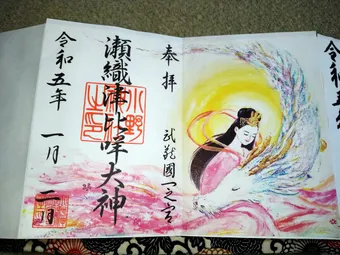 令和五
奉拝
武蔵國一之宮
瀬織津比咩大神
令和五年 一月 二日